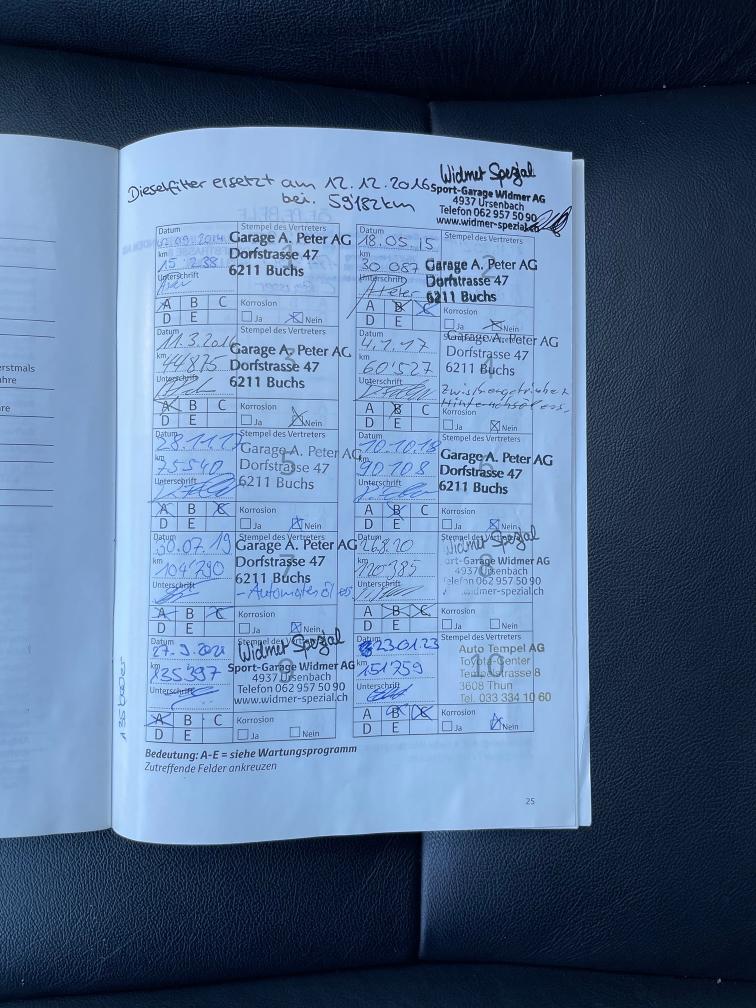 erstmals
ahre
re
Dieselfilter ersetzt am 12.12.2016
bei. 59182km
Widmer Spezial
Sport-Garage Widmer AG
4937 Ursenbach
Telefon 062 957 50 90
www.widmer-spezial.ch
Datum
Stempel des Vertreters
1
km
15 238
Unterschrift
Garage A. Peter AG
Dorfstrasse 47
6211 Buchs
A B C
D E
Korrosion
Ja Nein
Datum
18.05.15
Stempel des Vertreters
2
km
30 087
Unterschrift
Garage A. Peter AG
Dorfstrasse 47
6211 Buchs
A B C
D E
Korrosion
Ja Nein
Datum
11.3.2016
Stempel des Vertreters
3
km
44875
Unterschrift
Garage A. Peter AG
Dorfstrasse 47
6211 Buchs
A B C
D E
Korrosion
Ja Nein
Datum
4.1.17
4
km
60'527
Unterschrift
Garage A. Peter AG
Dorfstrasse 47
6211 Buchs
A B C
D E
Korrosion
Ja Nein
Datum
28.11.17
Stempel des Vertreters
5
km
75540
Unterschrift
Garage A. Peter AG
Dorfstrasse 47
6211 Buchs
A B C
D E
Korrosion
Ja Nein
Datum
10.10.18
Stempel des Vertreters
6
km
90108
Unterschrift
Garage A. Peter AG
Dorfstrasse 47
6211 Buchs
A B C
D E
Korrosion
Ja Nein
Datum
30.07.19
Stempel des Vertreters
7
km
104'290
Unterschrift
Garage A. Peter AG
Dorfstrasse 47
6211 Buchs
A B C
D E
Korrosion
Ja Nein
Datum
26.8.20
Stempel des Vertreters
8
km
Unterschrift
Widmer Spezial
ort-Garage Widmer AG
4937 Ursenbach
elefon 062 957 50 90
widmer-spezial.ch
A B C
D E
Korrosion
Ja Nein
Datum
27.9.2021
Stempel des Vertreters
9
km
135397
Unterschrift
Widmer Spezial
Sport-Garage Widmer AG
4937 Ursenbach
Telefon 062 957 50 90
www.widmer-spezial.ch
A B C
D E
Korrosion
Ja Nein
Datum
23.01.23
Stempel des Vertreters
10
km
151759
Unterschrift
Auto Tempel AG
Toyota-Center
Tempelstrasse 8
3608 Thun
Tel. 033 334 10 60
A B C
D E
Korrosion
Ja Nein
Bedeutung: A-E = siehe Wartungsprogramm
Zutreffende Felder ankreuzen
25